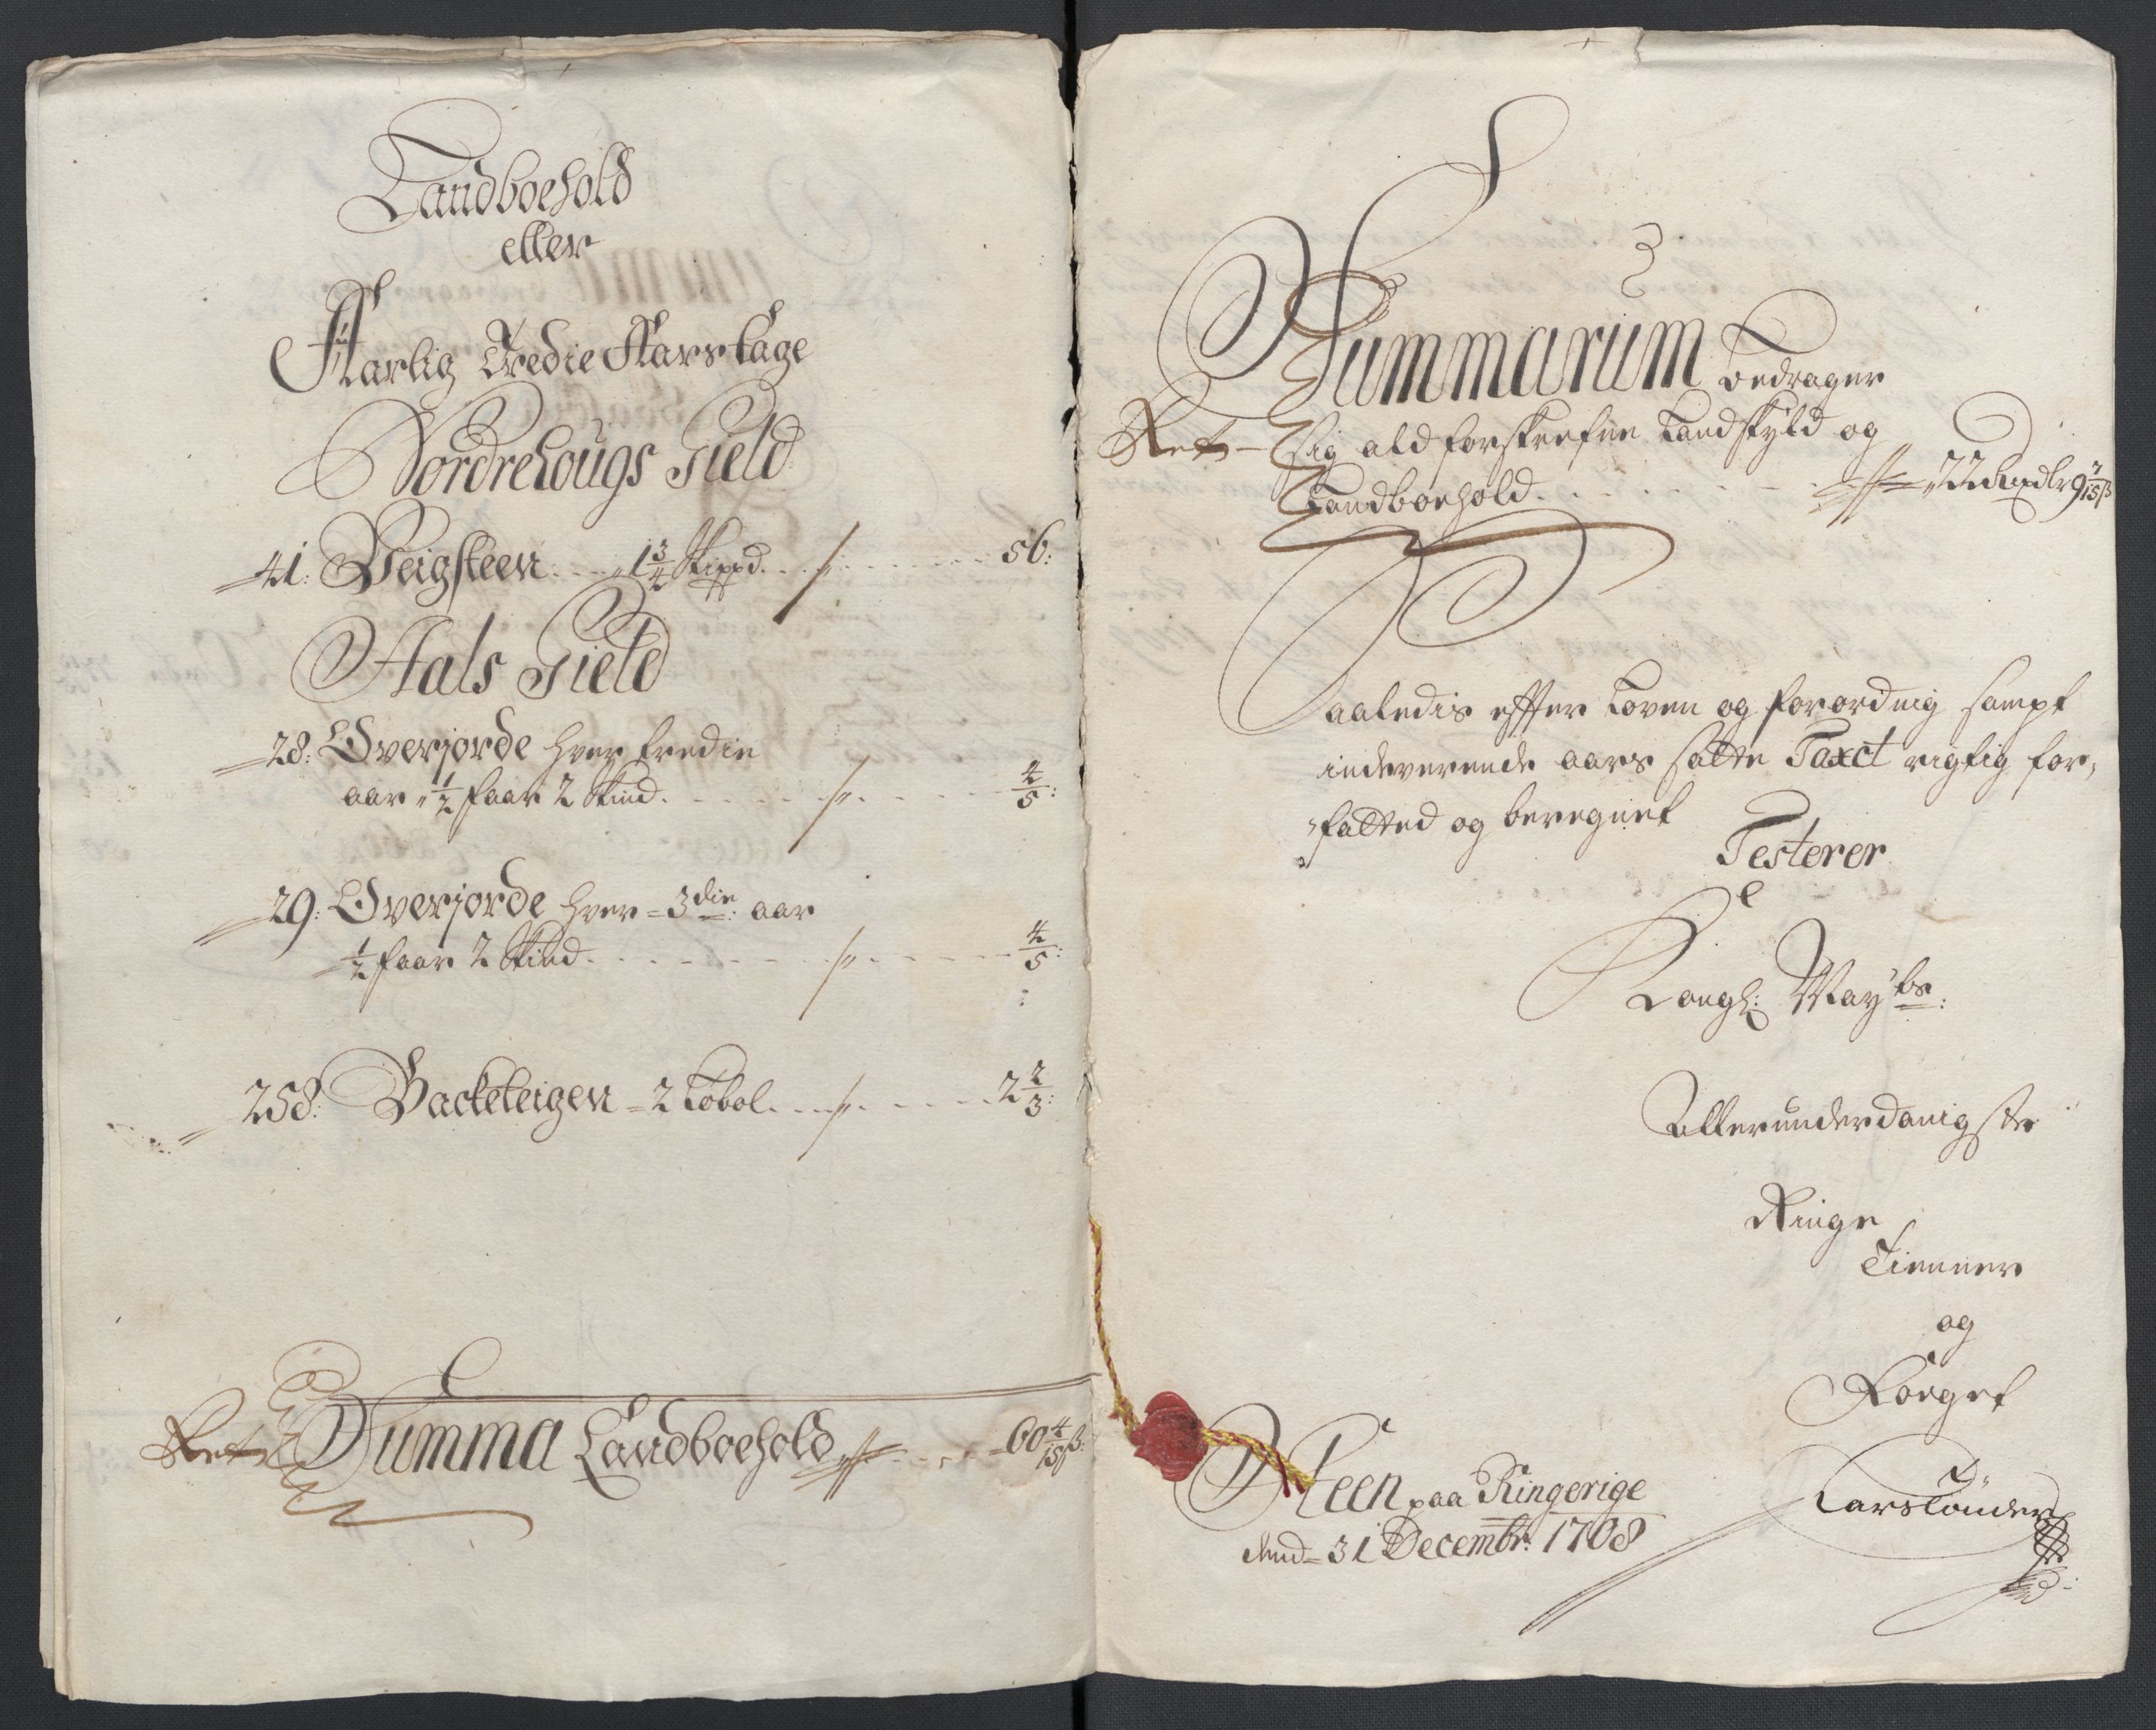 Landboehold
eller
Aarlig Tredie Aars tage
Nordrehougs Gield
41: Veigsteen . . . 1 3/4 Skippd . . . 56:
Aals Gield
28: Øverjorde hver tredie
aar 1/2 faar 2 Skind . . . 4/5:
29: Øverjorde hver 3die: aar
1/2 faar 2 Skind . . . 4/5:
258: Backeteigen 2 Løbol . . . 2 2/3:
Ret Summa Landboehold . . . 60 4/15 ß:
Summarum bedrager
Ret sig ald forskrefne Landskyld og
Landboehold . . . 72 Rixdlr 9 7/15 ß
Saaledis effter Loven og forordnig sampt
indeværende aars satte Taxct rigtig for,
fatted og beregnet
Testerer
Kongl: May'ts:
Allerunderdanigste
Ringe
Tienner
og
Foeget
Steen paa Ringerige
dend 31 Decembr: 1708
Lars Tønder